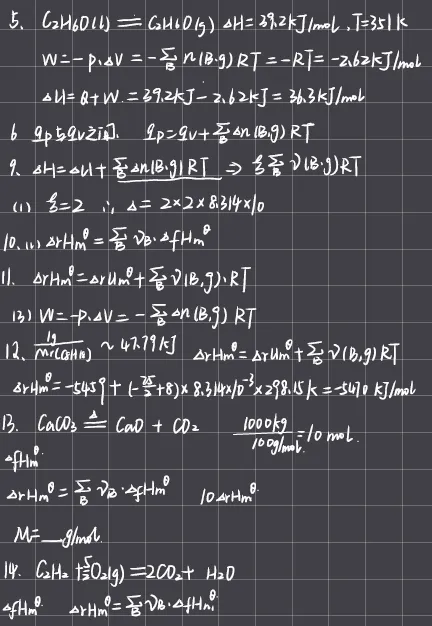 5. C₂H₆O(l) ═ C₂H₆O(g) ΔH=39.2kJ/mol, T=351k
W=-p·ΔV = -∑_B n(B·g) RT = -RT = -2.62kJ/mol
ΔU=Q+W = 39.2kJ-2.62kJ = 36.3kJ/mol
6 qp与qv之间. qp=qv+∑_B Δn(B,g) RT
9. ΔH=ΔU+∑_B Δn(B,g)RT ⇒ ξ∑_B ν(B·g)RT
(1) ξ=2 ∴ Δ= 2×2×8.314×10
10. (1) ΔrHm^θ = ∑_B νB·ΔfHm^θ
11. ΔrHm^θ=ΔrUm^θ+∑_B ν(B,g)·RT
(3) W=-p·ΔV = -∑_B Δn(B,g) RT
12. 1g/Mr(C₇H₁₆) ~ 47.79kJ ΔrHm^θ=ΔrUm^θ+∑_B ν(B,g)RT
ΔrHm^θ=-5459+(-25/2+8)×8.314×10⁻³×298.15k=-5470 kJ/mol
13. CaCO₃ ≜ CaO + CO₂ 1000kg/100g/mol=10 mol.
ΔfHm^θ
ΔrHm^θ=∑_B νB·ΔfHm^θ 10ΔrHm^θ
M=__g/mol.
14. C₂H₂ +5/2O₂(g)═2CO₂+ H₂O
ΔfHm^θ ΔrHm^θ=∑_B νB·ΔfHm^θ